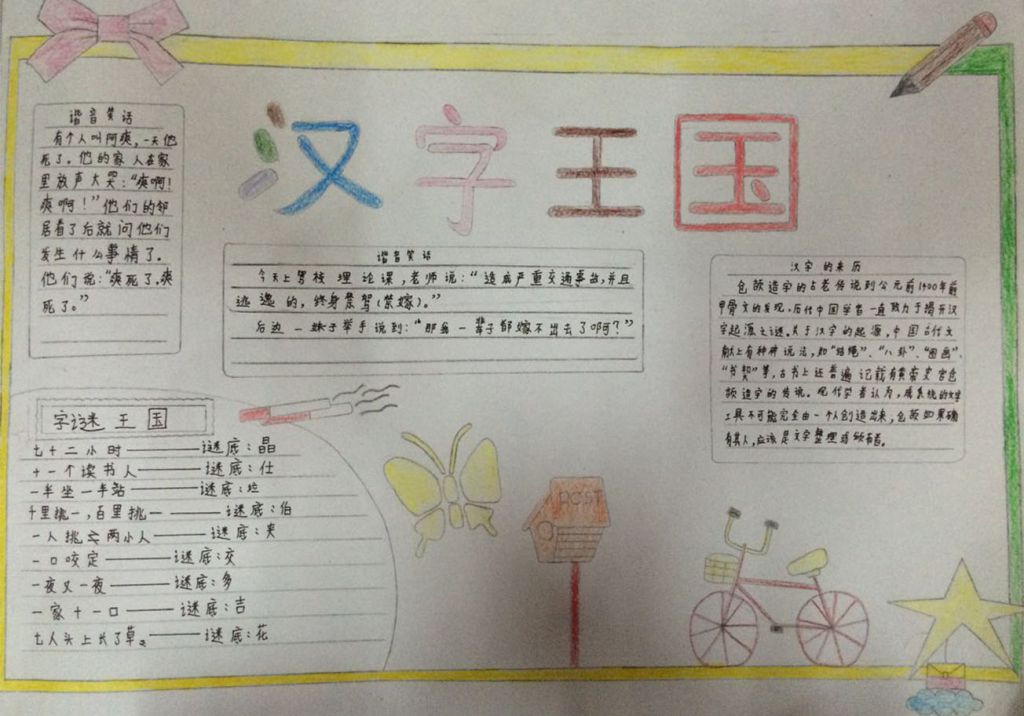 汉字王国
谐音笑话
有个人叫阿爽,一天他
死了。他的家人在家
里放声大哭:“爽啊!
爽啊!”他们的邻
居看了后就问他们
发生什么事情了。
他们说:“爽死了,爽
死了。”
谐音笑话
今天上驾校理论课,老师说:“造成严重交通事故,并且
逃逸的,终身禁驾(禁嫁)。”
后边一妹子举手说到:“那我一辈子都嫁不出去了啊?”
汉字的来历
仓颉造字的古老传说到公元前1400年前
甲骨文的发现,历代中国学者一直致力于揭开汉
字起源之谜。关于汉字的起源,中国古代文
献上有种种说法,如“结绳”、“八卦”、“图画”、
“书契”等,古书上还普遍记载有黄帝史官仓
颉造字的传说。现代学者认为,成系统的文字
工具不可能完全由一个人创造出来,仓颉如果确
有其人,应该是文字整理者或颁布者。
字谜王国
七十二小时———谜底:晶
十一个读书人———谜底:仕
一半坐一半站———谜底:垃
千里挑一,百里挑一———谜底:伯
一人挑两小人———谜底:夹
一口咬定———谜底:交
一夜又一夜———谜底:多
一家十一口———谜底:吉
七人头上长了草。———谜底:花
POST